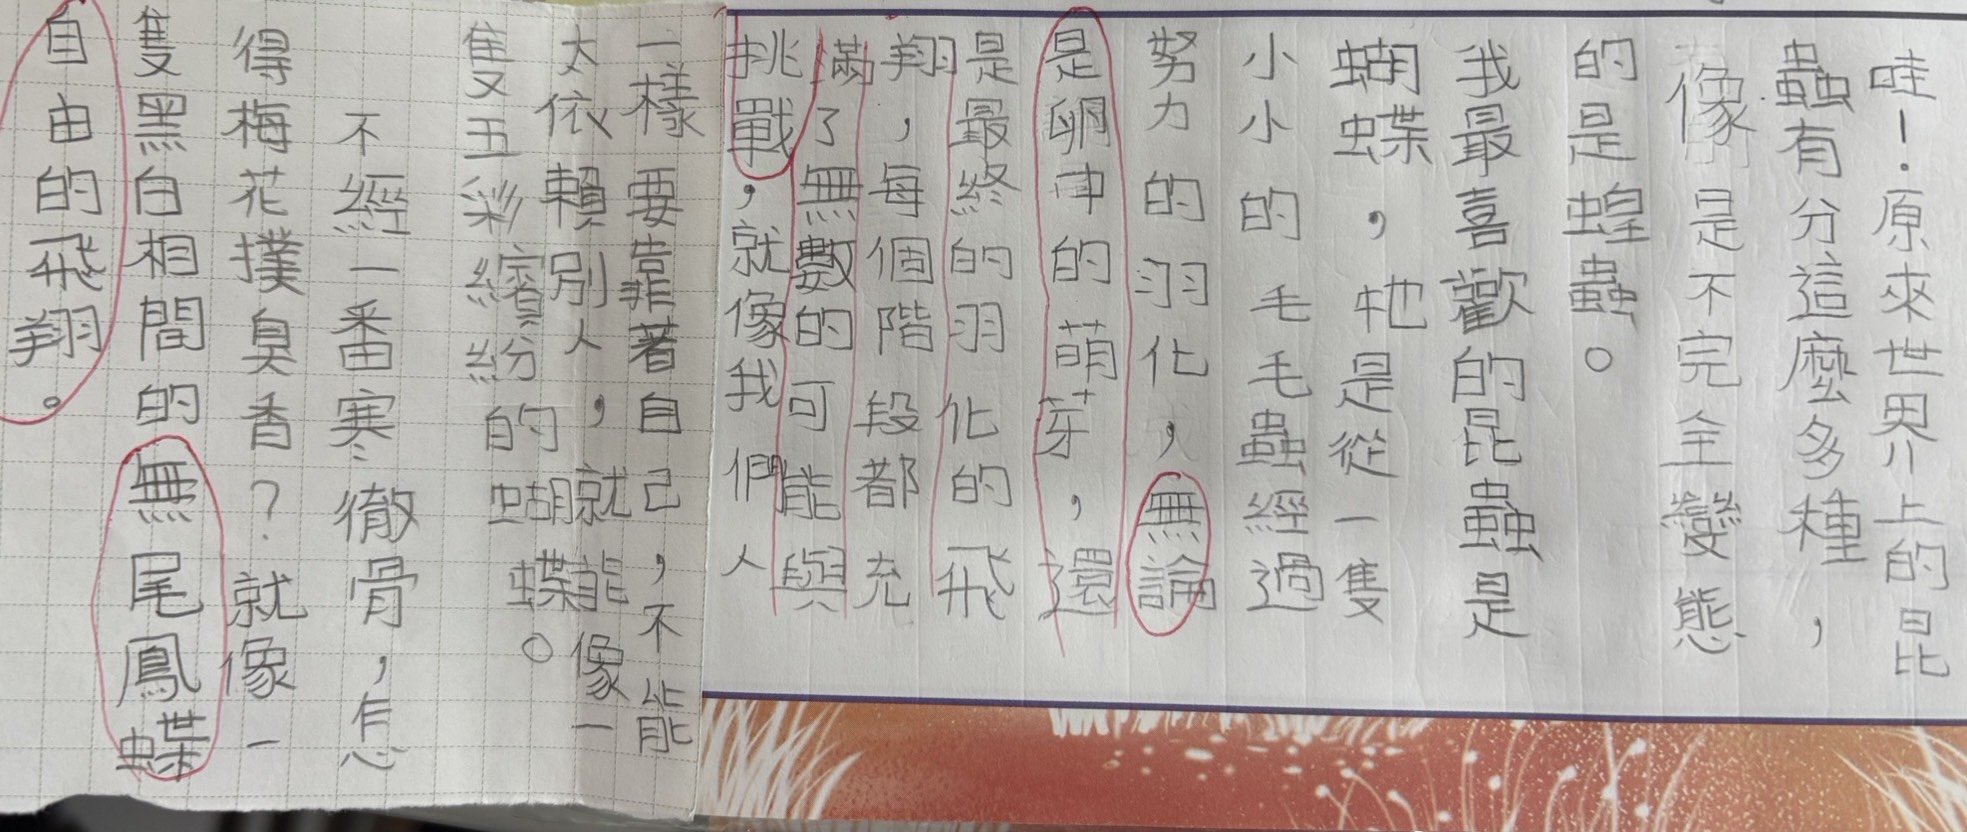 哇！原來世界上的昆
蟲有分這麼多種，
像是不完全變態
的是蝗蟲。
我最喜歡的昆蟲是
蝴蝶，牠是從一隻
小小的毛毛蟲經過
努力的羽化，無論
是卵中的萌芽，還
是最終的羽化的飛
翔，每個階段都充
滿了無數的可能與
挑戰，就像我們人
一樣要靠著自己，不能
太依賴別人，就能像一
隻五彩繽紛的蝴蝶。
不經一番寒徹骨，怎
得梅花撲臭香？就像一
隻黑白相間的無尾鳳蝶
自由的飛翔。